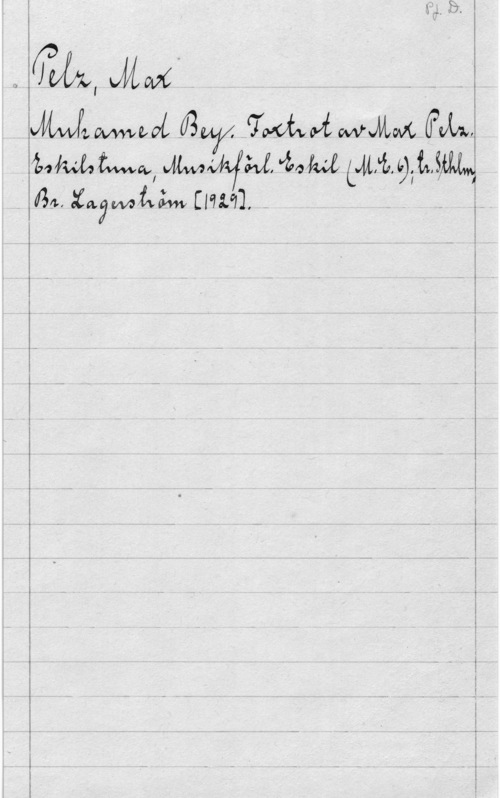 Pj D.
Pelz, Max
Muhamed Bey. Foxtrot av Max Pelz.
Eskilstuna, Musikförl. Eskil (M.E. 6); tr. Sthlm,
Br. Lagerström [1929].